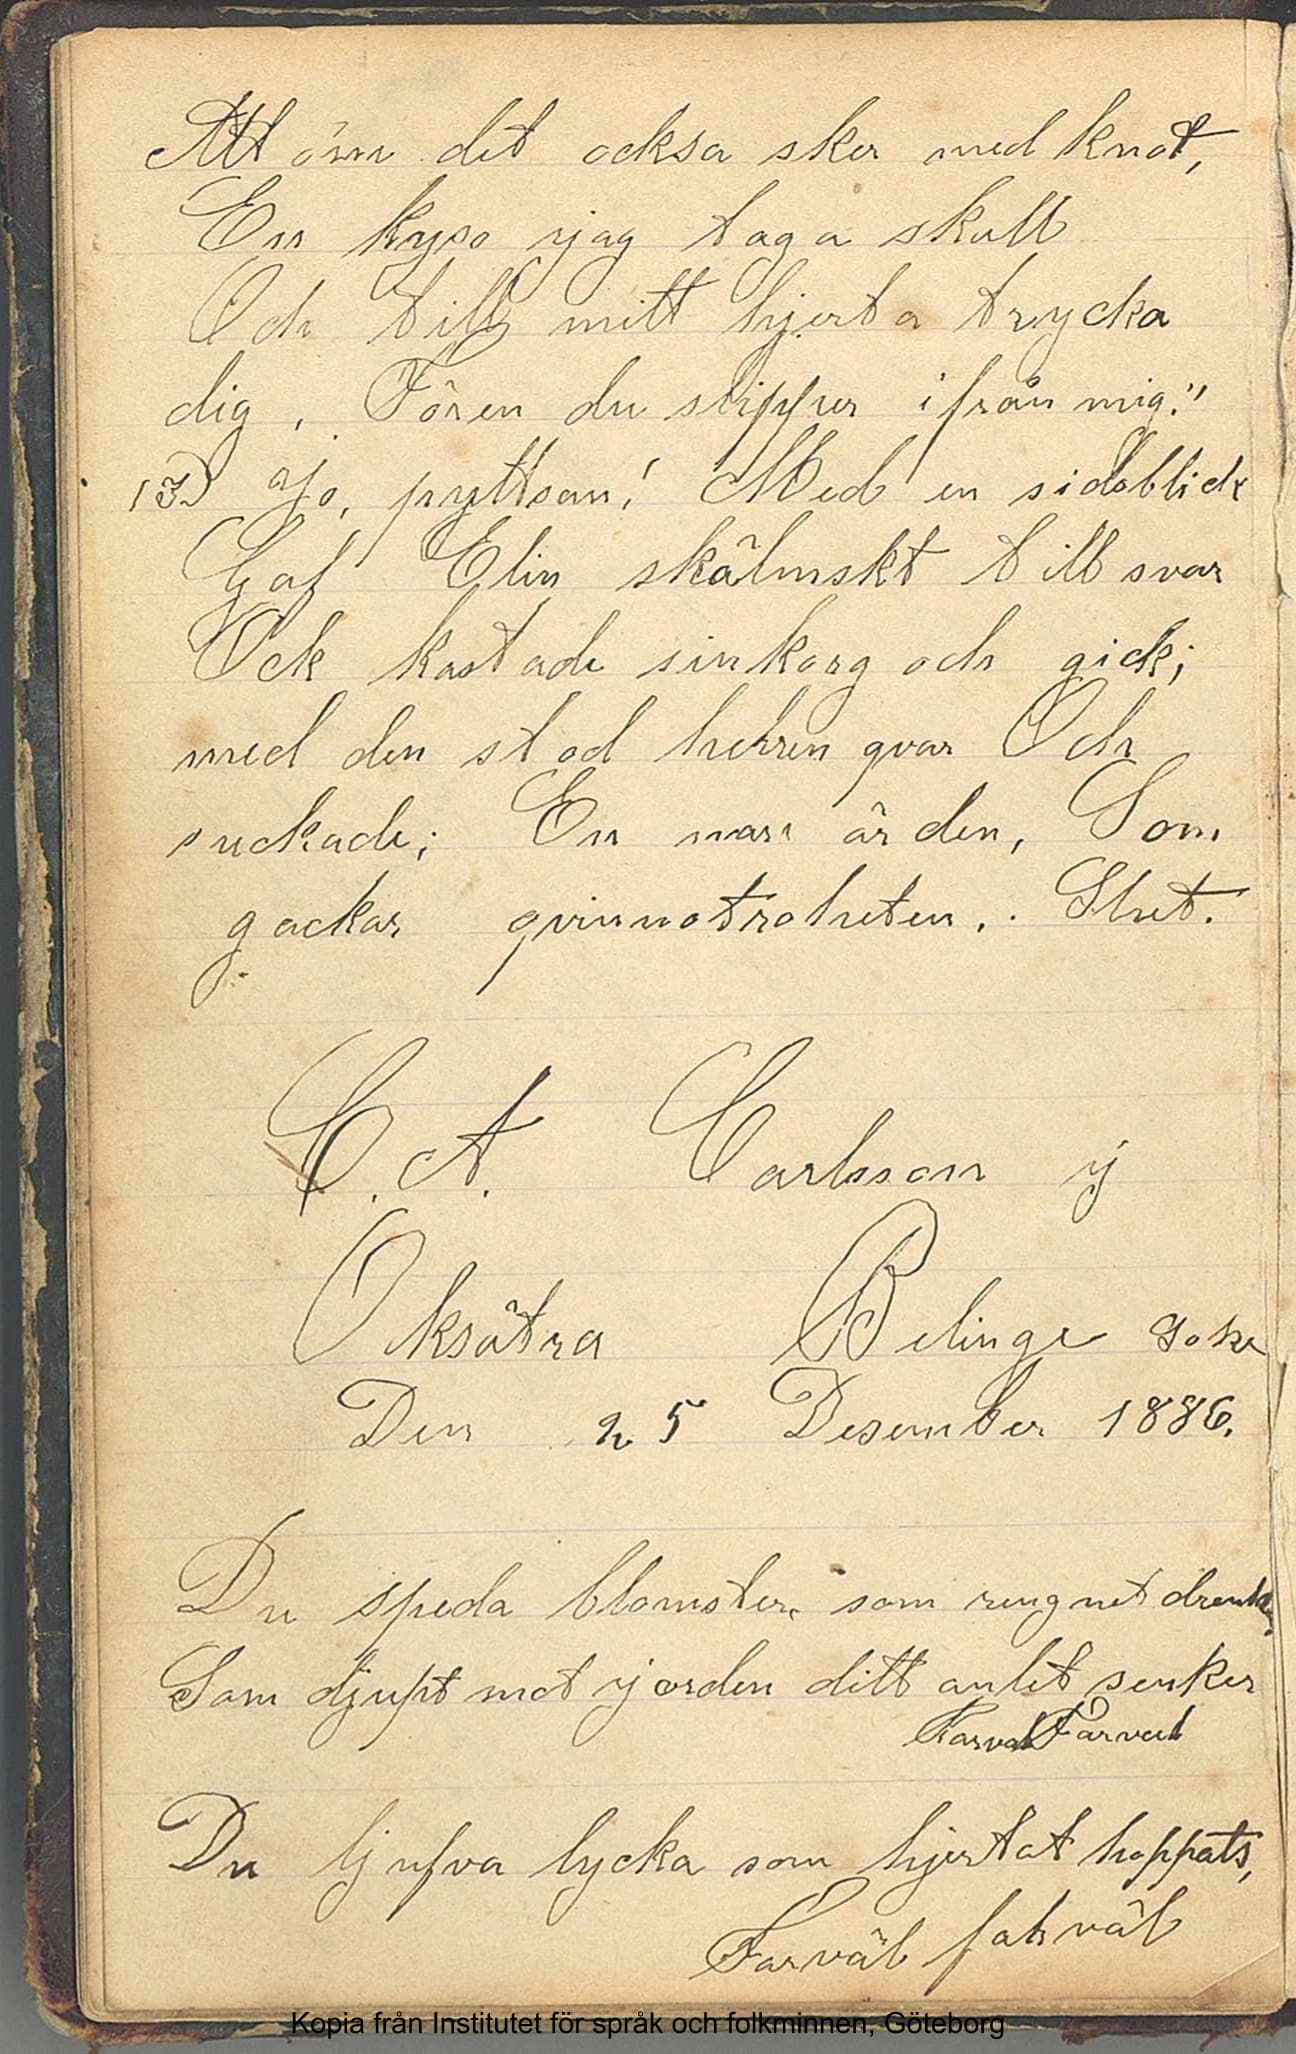 Att öm det ocksa sker med knot,
En kyss yjag taga skall
Och till mitt hjerta trycka
dig, Fören du slipper ifrån mig."
13) Jo, pyttsan! Med en sidoblick
Gaf Elin skälmskt till svar
Ock kastade sin korg och gick;
med den stod hehren qvar Och
suckade; En narr är den, Som
gäckar qvinnotroheten. . Slut.
C. A. Carlsson ij
Oksätra Belinge Sokn
Den 25 Desember 1886.
Du speda blomster, som rengnet drenker,
Som djupt mot yjorden ditt anlet senker
Farväl Farväl
Du ljufva lycka som hjertat hoppats,
Farväl fahrväl
Kopia från Institutet för språk och folkminnen, Göteborg